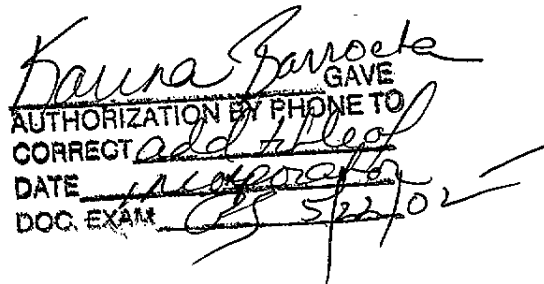 Karina Barroeta
GAVE
AUTHORIZATION BY PHONE TO
CORRECT add title of
DATE incorporator
DOC. EXAM 5/22/02